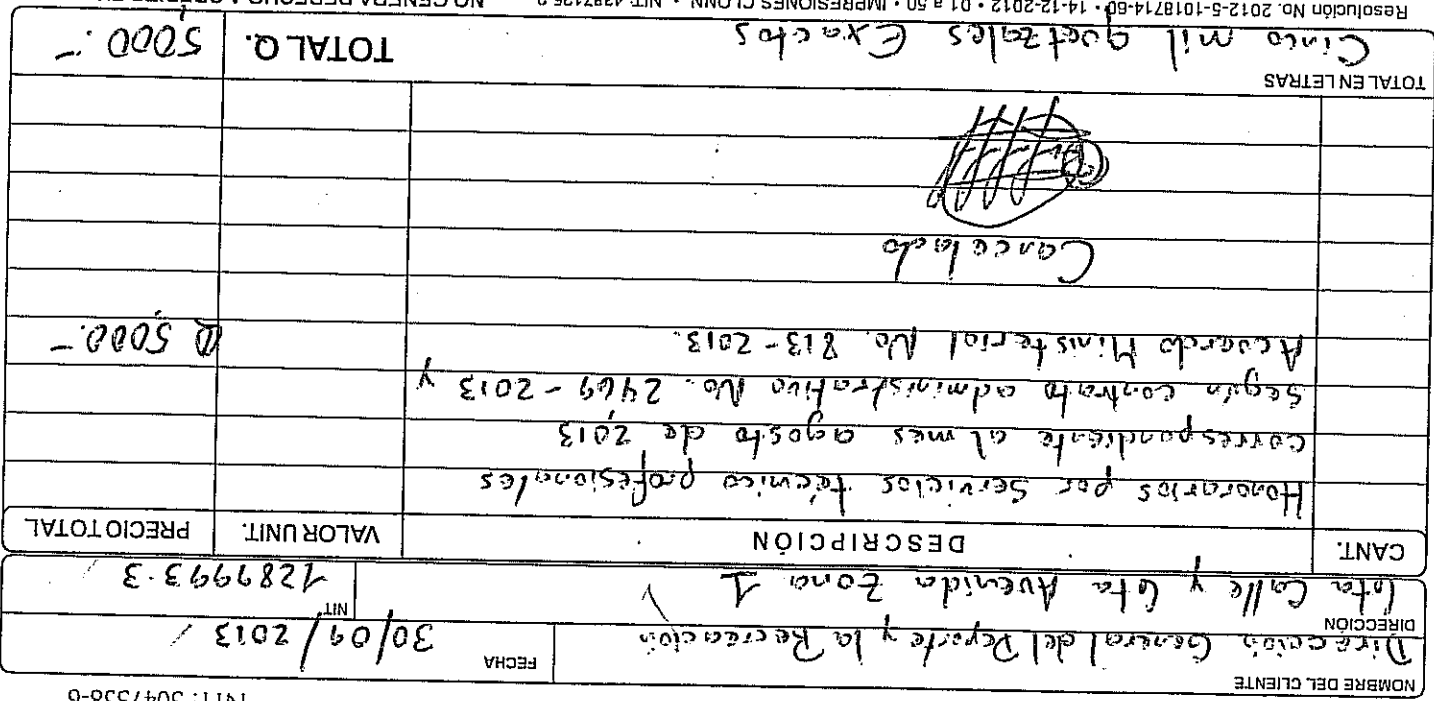 NIT: 5047538-6
NOMBRE DEL CLIENTE
Dirección General del Deporte y la Recreación
FECHA 30/09/2013
DIRECCIÓN
6ta Calle y 6ta Avenida Zona 1
NIT 1289993-3
CANT. DESCRIPCIÓN VALOR UNIT. PRECIO TOTAL
Honorarios por Servicios técnico profesionales
correspondiente al mes agosto de 2013
según contrato administrativo No. 2469-2013 y
Acuerdo Ministerial No. 813-2013. Q 5,000.-
Cancelado
TOTAL EN LETRAS
Cinco mil quetzales Exactos
TOTAL Q. 5,000.-
Resolución No. 2012-5-1018714-60 • 14-12-2012 • 01 a 50 • IMPRESIONES CLONN • NIT: 4387125-2